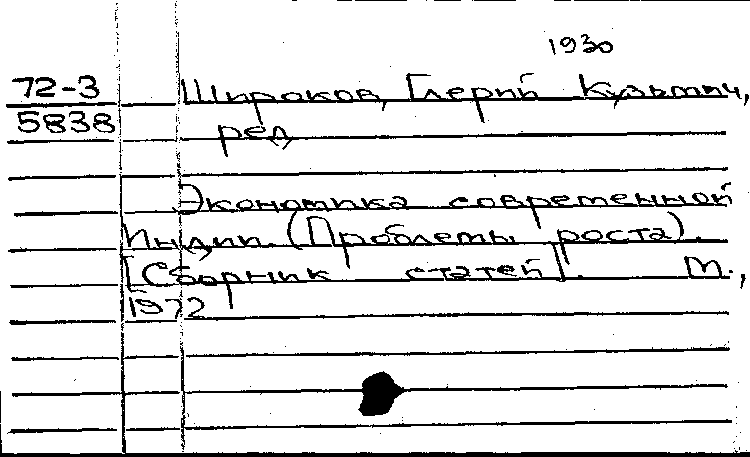 1930
72-3 Широков, Глерий Кузьмич,
5838 ред
Экономика современной
Индии. (Проблемы роста).
[Сборник статей]. М.,
1972